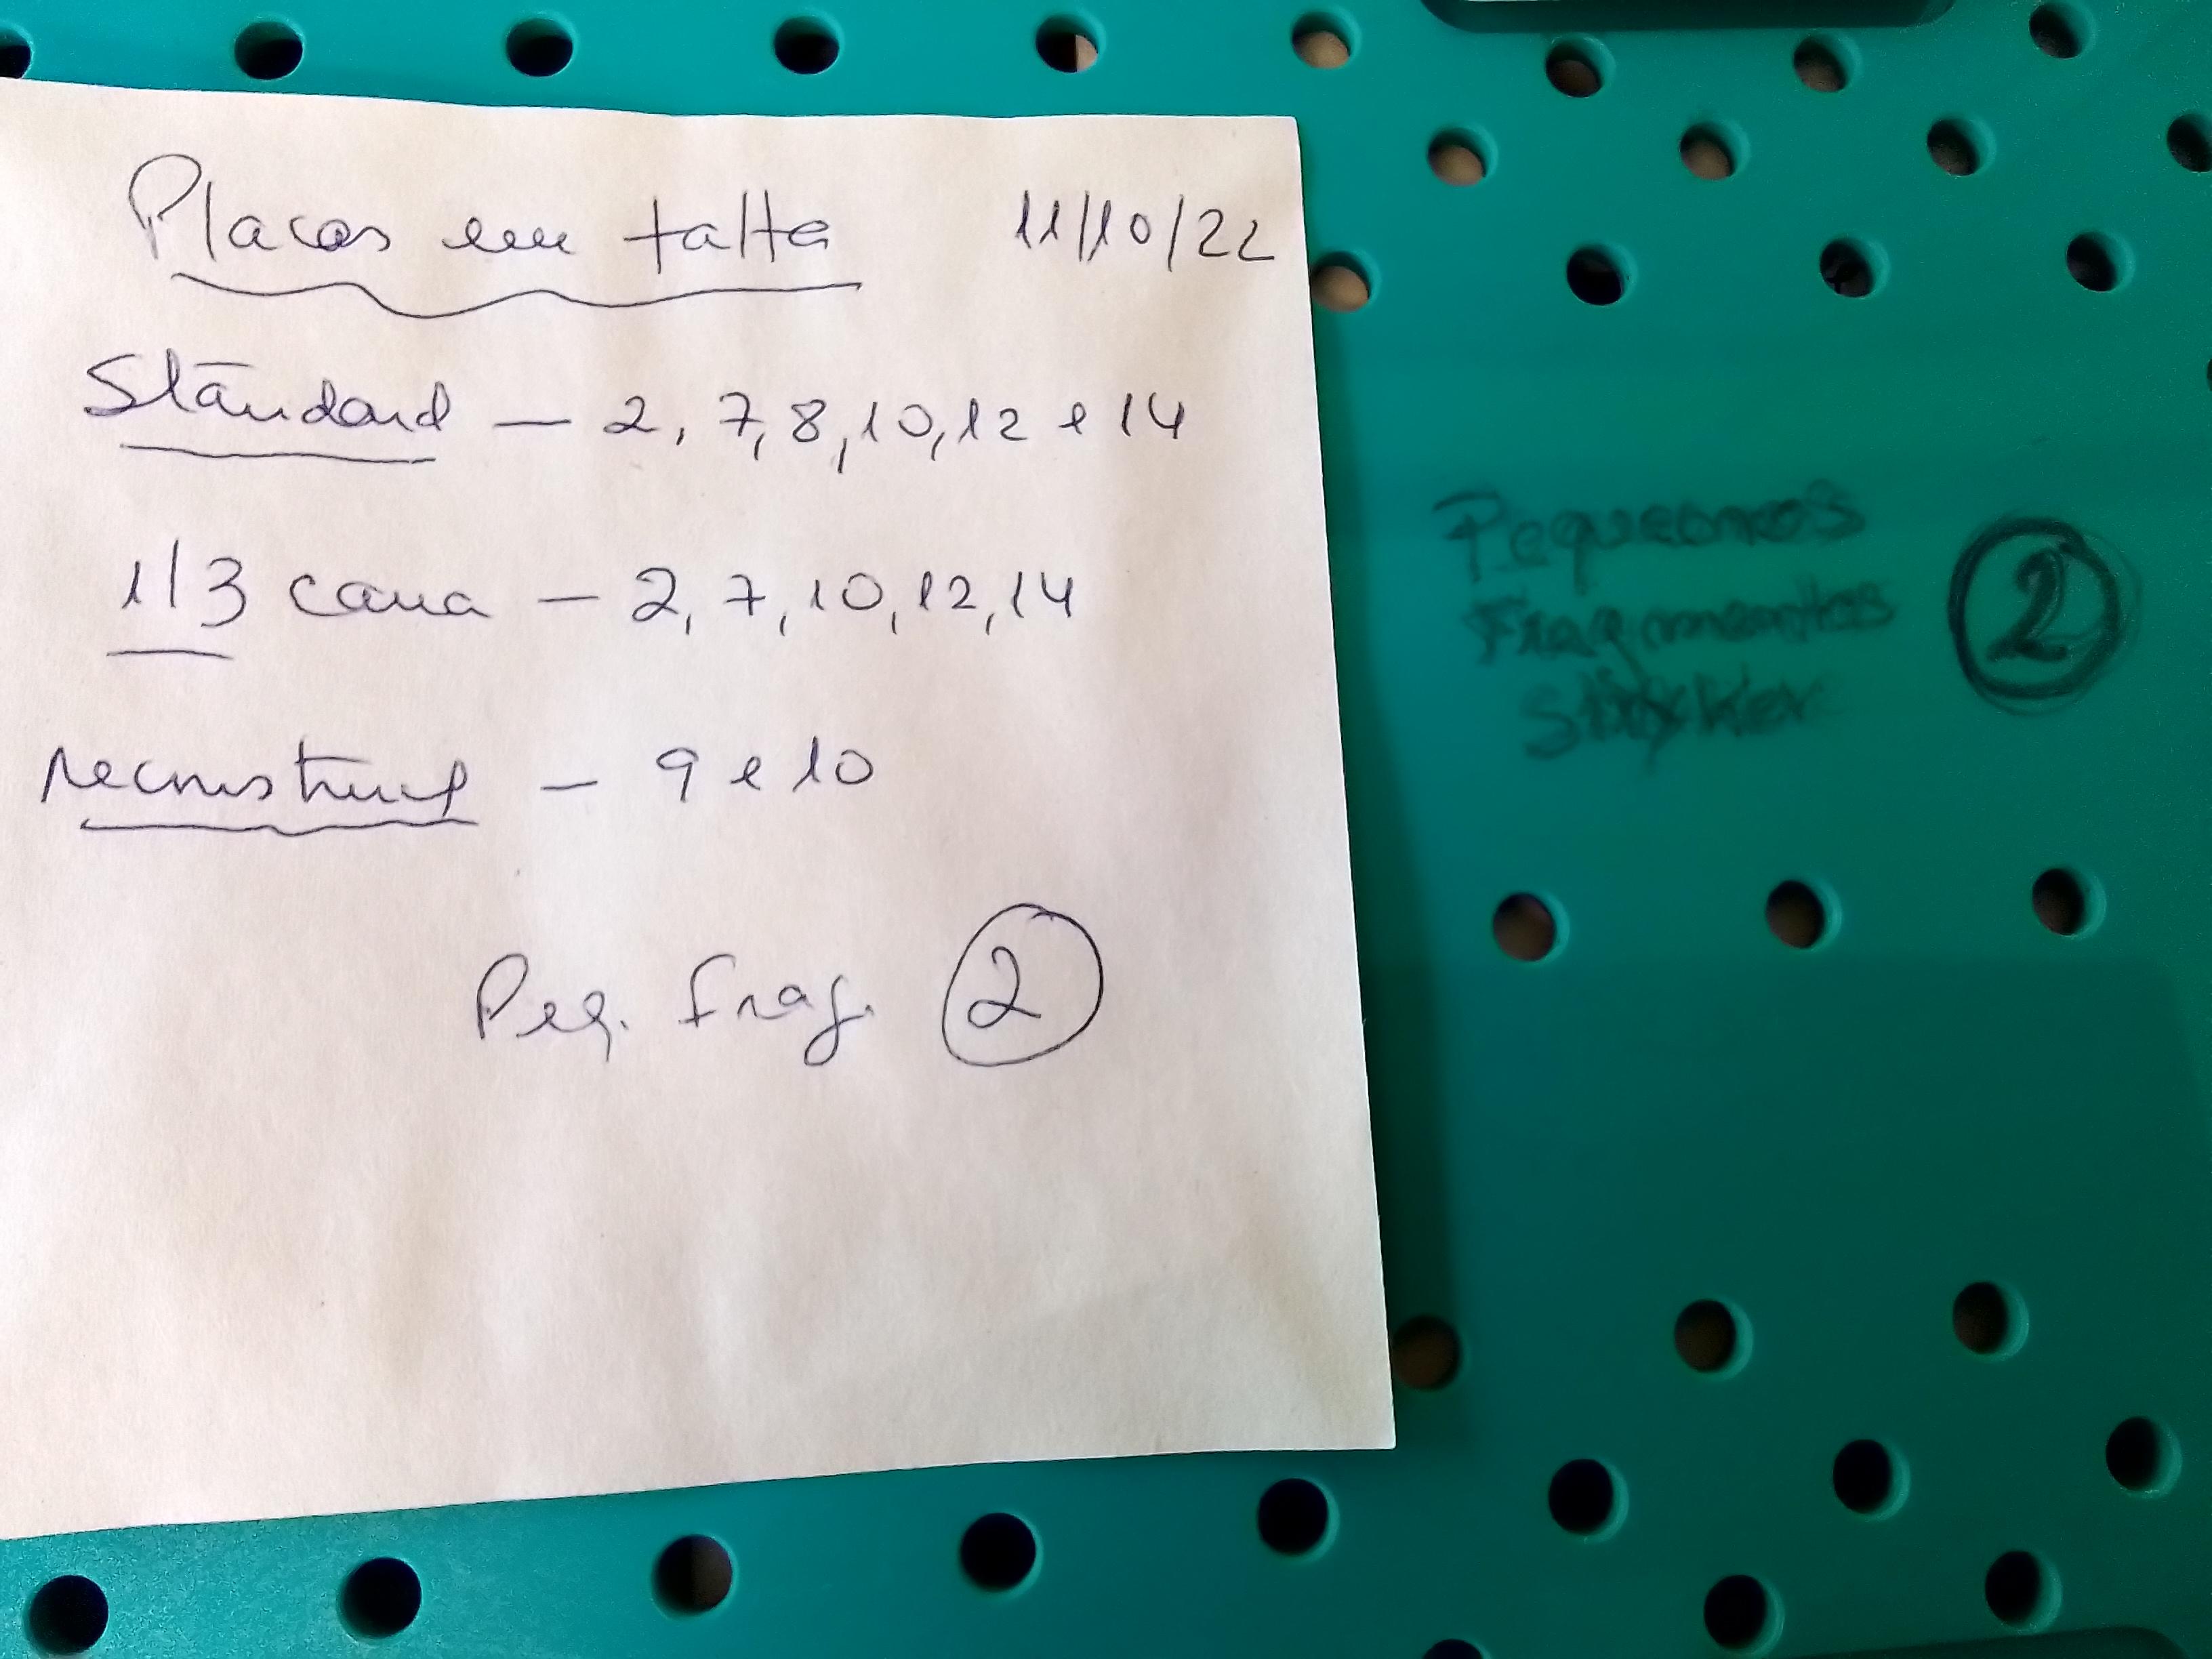 Placas em falta 11/10/22
Standard — 2, 7, 8, 10, 12 e 14
1/3 cana — 2, 7, 10, 12, 14
reconstruç — 9 e 10
Peq. Frag. 2
Pequenos
Fragmentos
Stryker
2